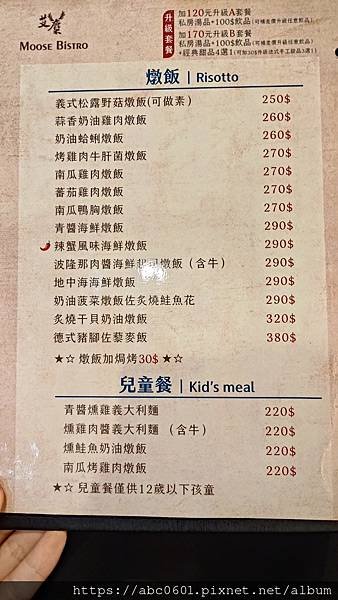 艾麋
MOOSE BISTRO
升級套餐
加120元升級A套餐
私房湯品+100$飲品(可補差價升級任意飲品)
加170元升級B套餐
私房湯品+100$飲品(可補差價升級任意飲品)
+經典甜品4選1
燉飯 | Risotto
義式松露野菇燉飯(可做素) 250$
蒜香奶油雞肉燉飯 260$
奶油蛤蜊燉飯 260$
烤雞肉牛肝菌燉飯 270$
南瓜雞肉燉飯 270$
蕃茄雞肉燉飯 270$
南瓜鴨胸燉飯 270$
青醬海鮮燉飯 290$
辣蟹風味海鮮燉飯 290$
波隆那肉醬海鮮起司燉飯（含牛） 290$
地中海海鮮燉飯 290$
奶油菠菜燉飯佐炙燒鮭魚花 290$
炙燒干貝奶油燉飯 320$
德式豬腳佐藜麥飯 380$
★☆ 燉飯加焗烤30$ ★☆
兒童餐 | Kid's meal
青醬燻雞義大利麵 220$
燻雞肉醬義大利麵 （含牛） 220$
燻鮭魚奶油燉飯 220$
南瓜烤雞肉燉飯 220$
★☆ 兒童餐僅供12歲以下孩童
https://abc0601.pixnet.net/album